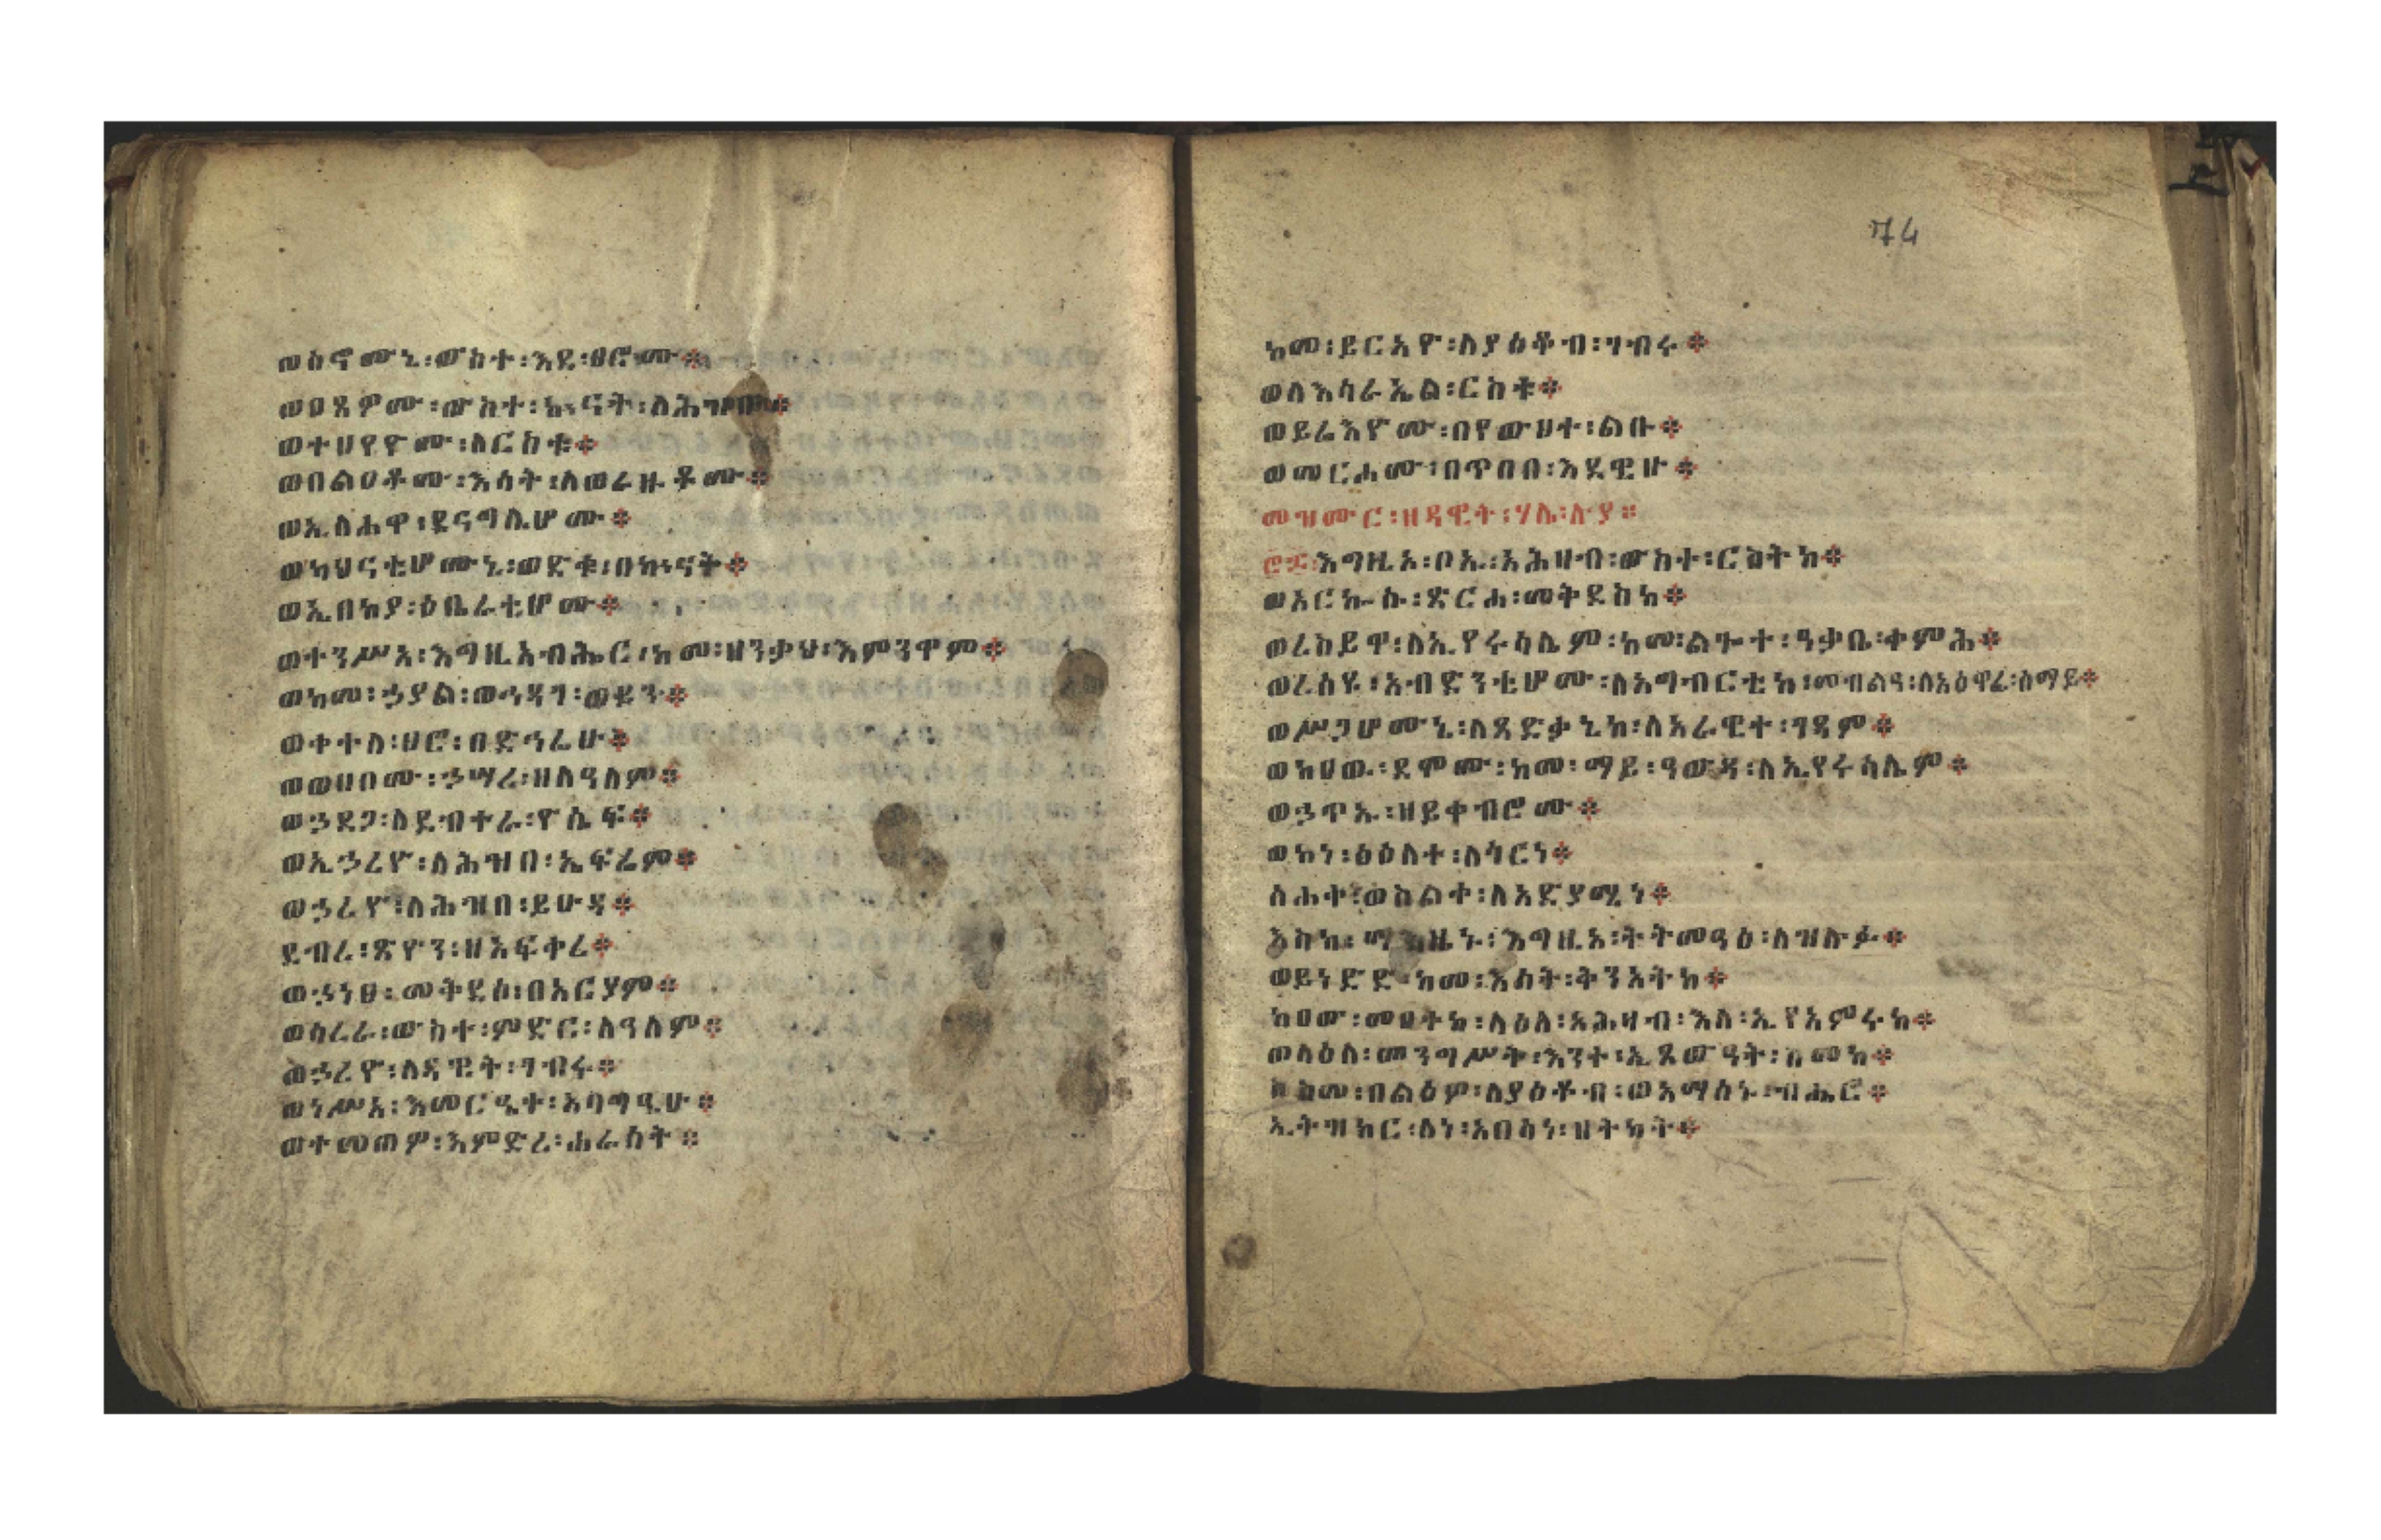 ወስኖሙኒ፡ውስተ፡እደ፡ፀሮሙ፨
ወዐጸዎሙ፡ውስተ፡ኲናት፡ለሕዝቡ፨
ወተሀየዮሙ፡ለርስቱ፨
ወበልዐቶሙ፡እሳት፡ለወራዙቶሙ፨
ወኢላሐዋ፡ደናግሊሆሙ፨
ወካህናቲሆሙኒ፡ወድቁ፡በኲናት፨
ወኢበከያ፡ዕቤራቲሆሙ፨
ወተንሥአ፡እግዚአብሔር፡ከመ፡ዘንቃህ፡እምንዋም፨
ወከመ፡ኃያል፡ወኅዳገ፡ወይን፨
ወቀተለ፡ፀሮ፡በድኅሬሁ፨
ወወሀቦሙ፡ኃሣረ፡ዘለዓለም፨
ወኃደጋ፡ለደብተራ፡ዮሴፍ፨
ወኢኃረዮ፡ለሕዝበ፡ኤፍሬም፨
ወኃረየ፡ለሕዝበ፡ይሁዳ፨
ደብረ፡ጽዮን፡ዘአፍቀረ፨
ወኃነፀ፡መቅደሰ፡በአርያም፨
ወሳረራ፡ውስተ፡ምድር፡ለዓለም፨
ወኃረዮ፡ለዳዊት፡ገብሩ፨
ወነሥአ፡እመርዔተ፡አባግዒሁ፨
ወተመጠዎ፡እምድኅረ፡ሐራሳት፨
74
ከመ፡ይርአዮ፡ለያዕቆብ፡ገብሩ፨
ወለእሳራኤል፡ርስቱ፨
ወይሬእዮሙ፡በየውሀተ፡ልቡ፨
ወመርሐሙ፡በጥበበ፡እደዊሁ፨
መዝሙር፡ዘዳዊት፡ሃሌ፡ሉያ፨
እግዚኦ፡ቦኡ፡አሕዛብ፡ውስተ፡ርስትከ፨
ወአርኲሱ፡ጽርሐ፡መቅደስከ፨
ወረሰይዋ፡ለኢየሩሳሌም፡ከመ፡ልጐተ፡ዓቃቤ፡ቀምሕ፨
ወረሰዩ፡አብድንቲሆሙ፡ለአግብርቲከ፡መብልዓ፡ለአዕዋፈ፡ሰማይ፨
ወሥጋሆሙኒ፡ለጻድቃኒከ፡ለአራዊተ፡ገዳም፨
ወከዐዉ፡ደሞሙ፡ከመ፡ማይ፡ዓውዳ፡ለኢየሩሳሌም፨
ወኃጥኡ፡ዘይቀብሮሙ፨
ወኮነ፡ፅዕለተ፡ለጎርነ፨
ሳሐቀ፡ወስልቀ፡ለአድያሚነ፨
እስከ፡ማእዜኑ፡እግዚኦ፡ትትመዓዕ፡ለዝሉፉ፨
ወይነድድ፡ከመ፡እሳት፡ቅንአትከ፨
ከዐው፡መዐተከ፡ላዕለ፡አሕዛብ፡እለ፡ኢየአምሩከ፨
ወላዕለ፡መንግሥት፡እንተ፡ኢጸውዓት፡ስመከ፨
እስመ፡በልዕዎ፡ለያዕቆብ፡ወአማሰኑ፡ብሔሮ፨
ኢትዝክር፡ለነ፡አበሳነ፡ዘትካት፨